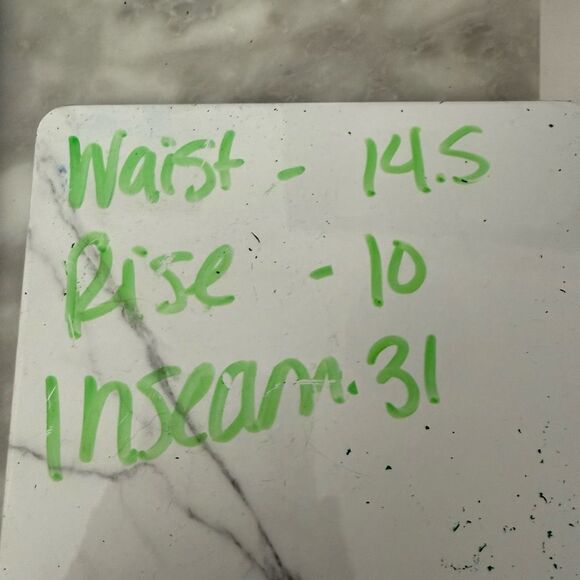 Waist - 14.5
Rise - 10
Inseam. 31